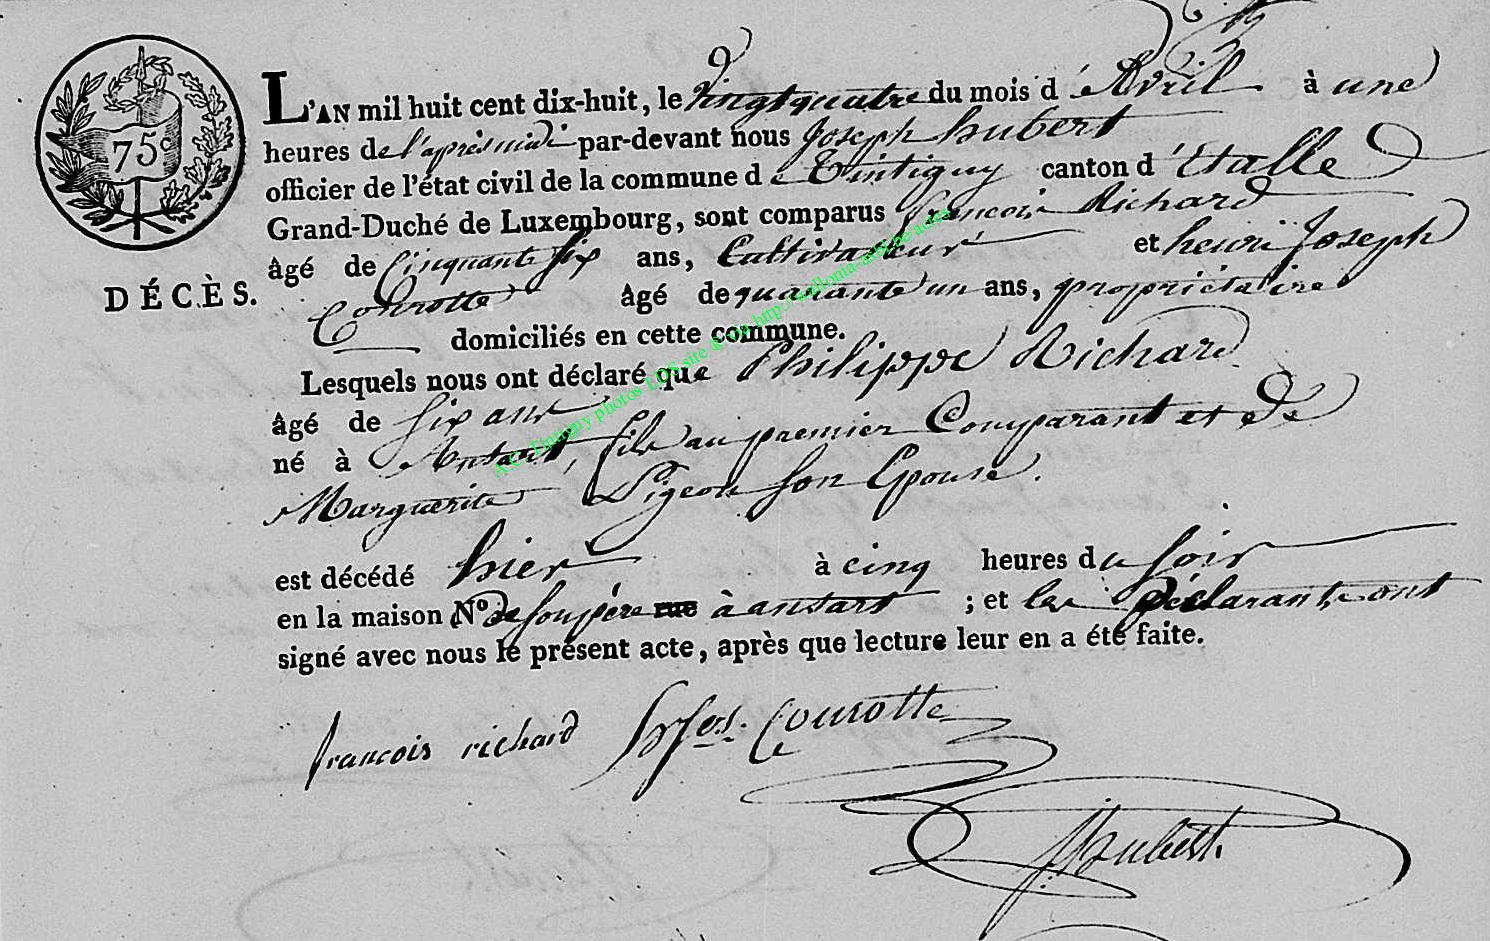 75c
L'AN mil huit cent dix-huit, le vingt quatre du mois d'Avril à une
heures de l'après midi par-devant nous Joseph hubert
officier de l'état civil de la commune de Tintigny canton d'Etalle
Grand-Duché de Luxembourg, sont comparus francois Richard
âgé de Cinquante six ans, Cultivateur et henri Joseph
DÉCÈS.
Courotte âgé de quarante un ans, propriétaire
domiciliés en cette commune.
Lesquels nous ont déclaré que Philippe Richard
âgé de six ans
né à Ansart, fils au premier Comparant et de
Marguerite Pigeon son Epouse.
est décédé hier à cinq heures du soir
en la maison N° de son père rue à ansart ; et les Déclarants ont
signé avec nous le présent acte, après que lecture leur en a été faite.
francois richard Courotte
Hubert